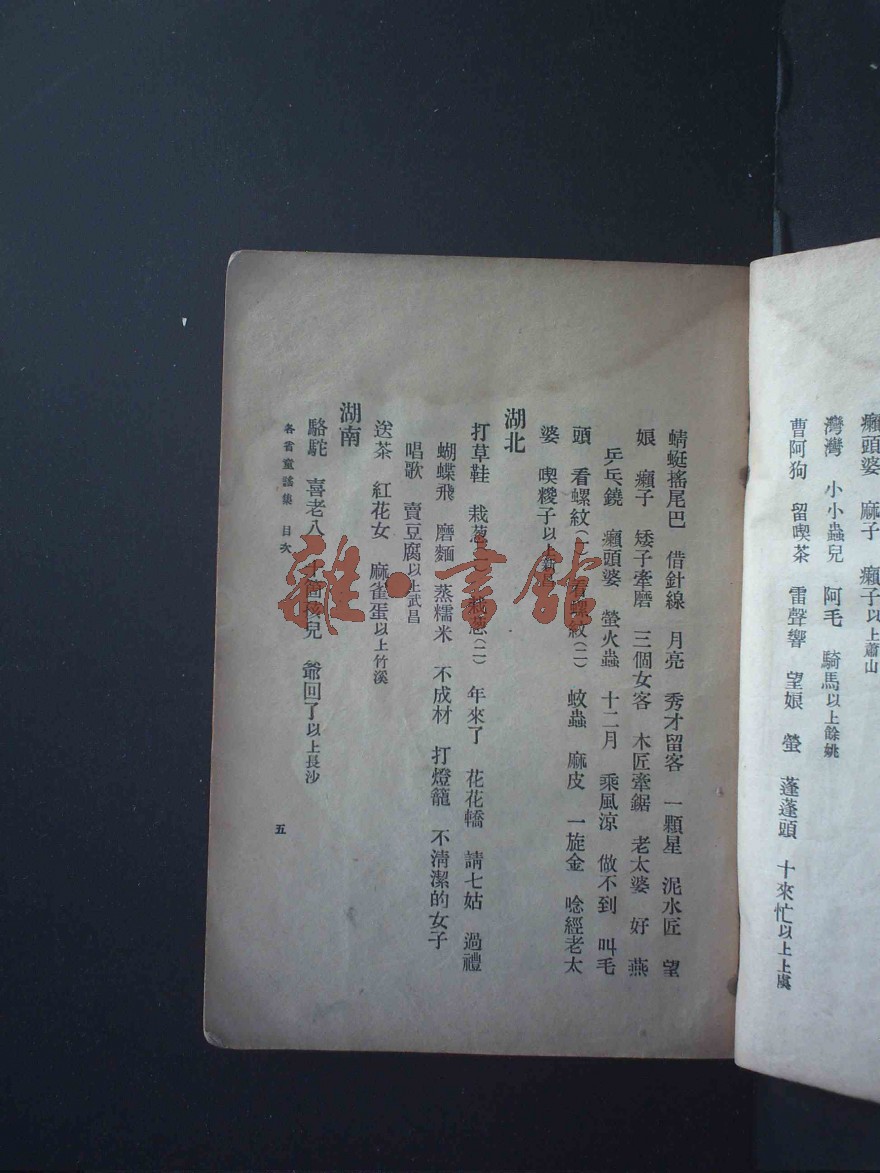 癩頭婆　麻子　癩子以上蕭山
灣灣　小小蟲兒　阿毛　騎馬以上餘姚
曹阿狗　留喫茶　雷聲響　望娘　螢　蓬蓬頭　十來忙以上上虞
蜻蜓搖尾巴　借針線　月亮　秀才留客　一顆星　泥水匠　望
娘　癩子　矮子牽磨　三個女客　木匠牽鋸　老太婆　好　燕
乒乓鐃　癩頭婆　螢火蟲　十二月　乘風涼　做不到　叫毛
頭　看螺紋(一)　看螺紋(二)　蚊蟲　麻皮　一旋金　唸經老太
婆　喫糉子以上新昌
湖北
打草鞋　栽葱(一)　栽葱(二)　年來了　花花轎　請七姑　過禮
蝴蝶飛　磨麵　蒸糯米　不成材　打燈籠　不清潔的女子
唱歌　賣豆腐以上武昌
送茶　紅花女　麻雀蛋以上竹溪
湖南
駱駝　喜老八　孩兒　爺回了以上長沙
各省童謠集　目次
五
雜·書館